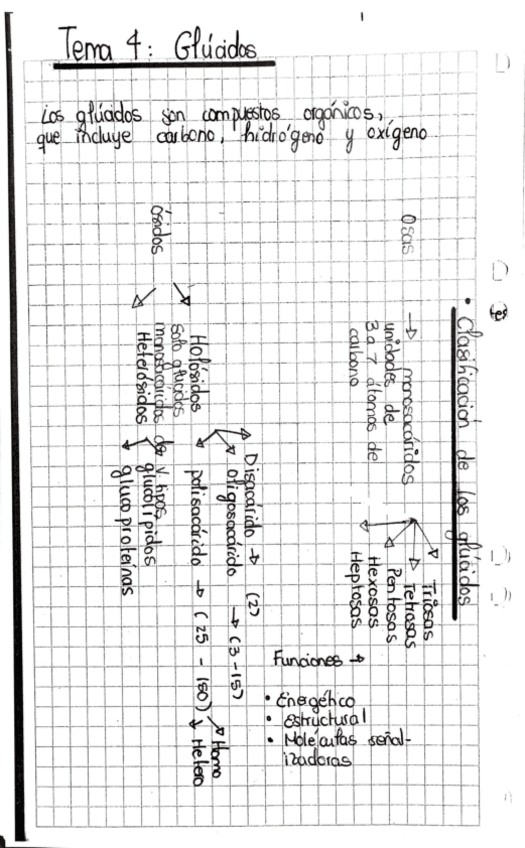 Tema 4: Glúcidos
Los glúcidos son compuestos orgánicos,
que incluye carbono, hidrógeno y oxígeno
• Clasificación de los glúcidos
Osas → monosacáridos
unidades de
3 a 7 átomos de
carbono
Triosas
Tetrosas
Pentosas
Hexosas
Heptosas
Ósidos
Holósidos
solo glúcidos
Disacárido → (2)
oligosacárido → (3-15)
polisacárido → (25 - 150)
Homo
Hetero
monosacáridos de v. tipos
Heterósidos
glucolípidos
glucoproteínas
Funciones →
• Energético
• estructural
• Moléculas señal-
izadoras